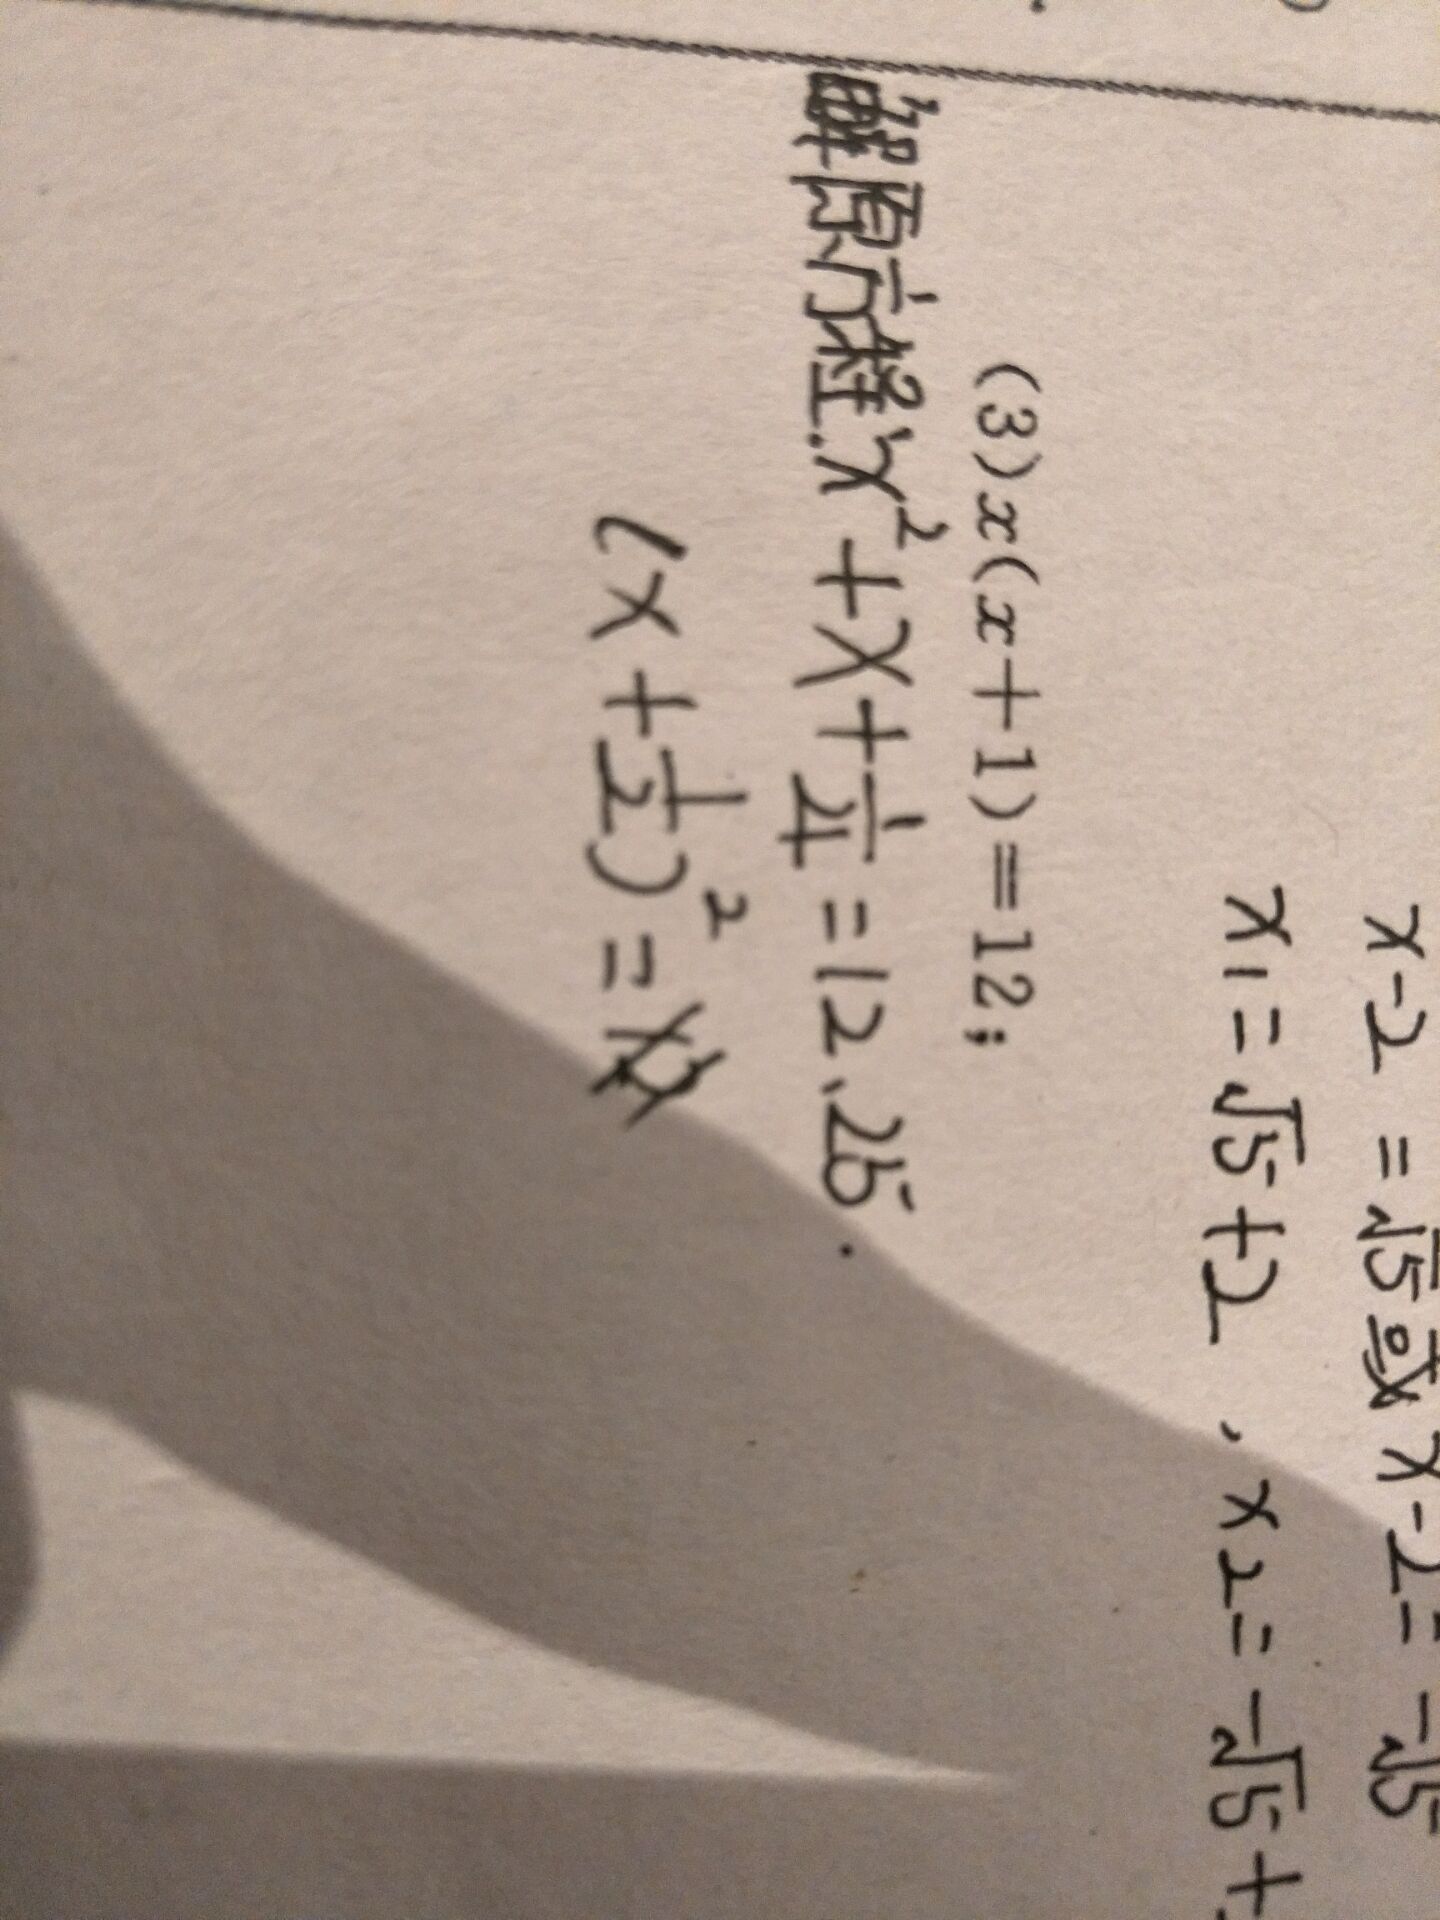 x-2=√5或x-2=-√5
x₁=√5+2,x₂=-√5+
(3)x(x+1)=12;
解原方程:x²+x+1/4=12.25.
(x+1/2)²=